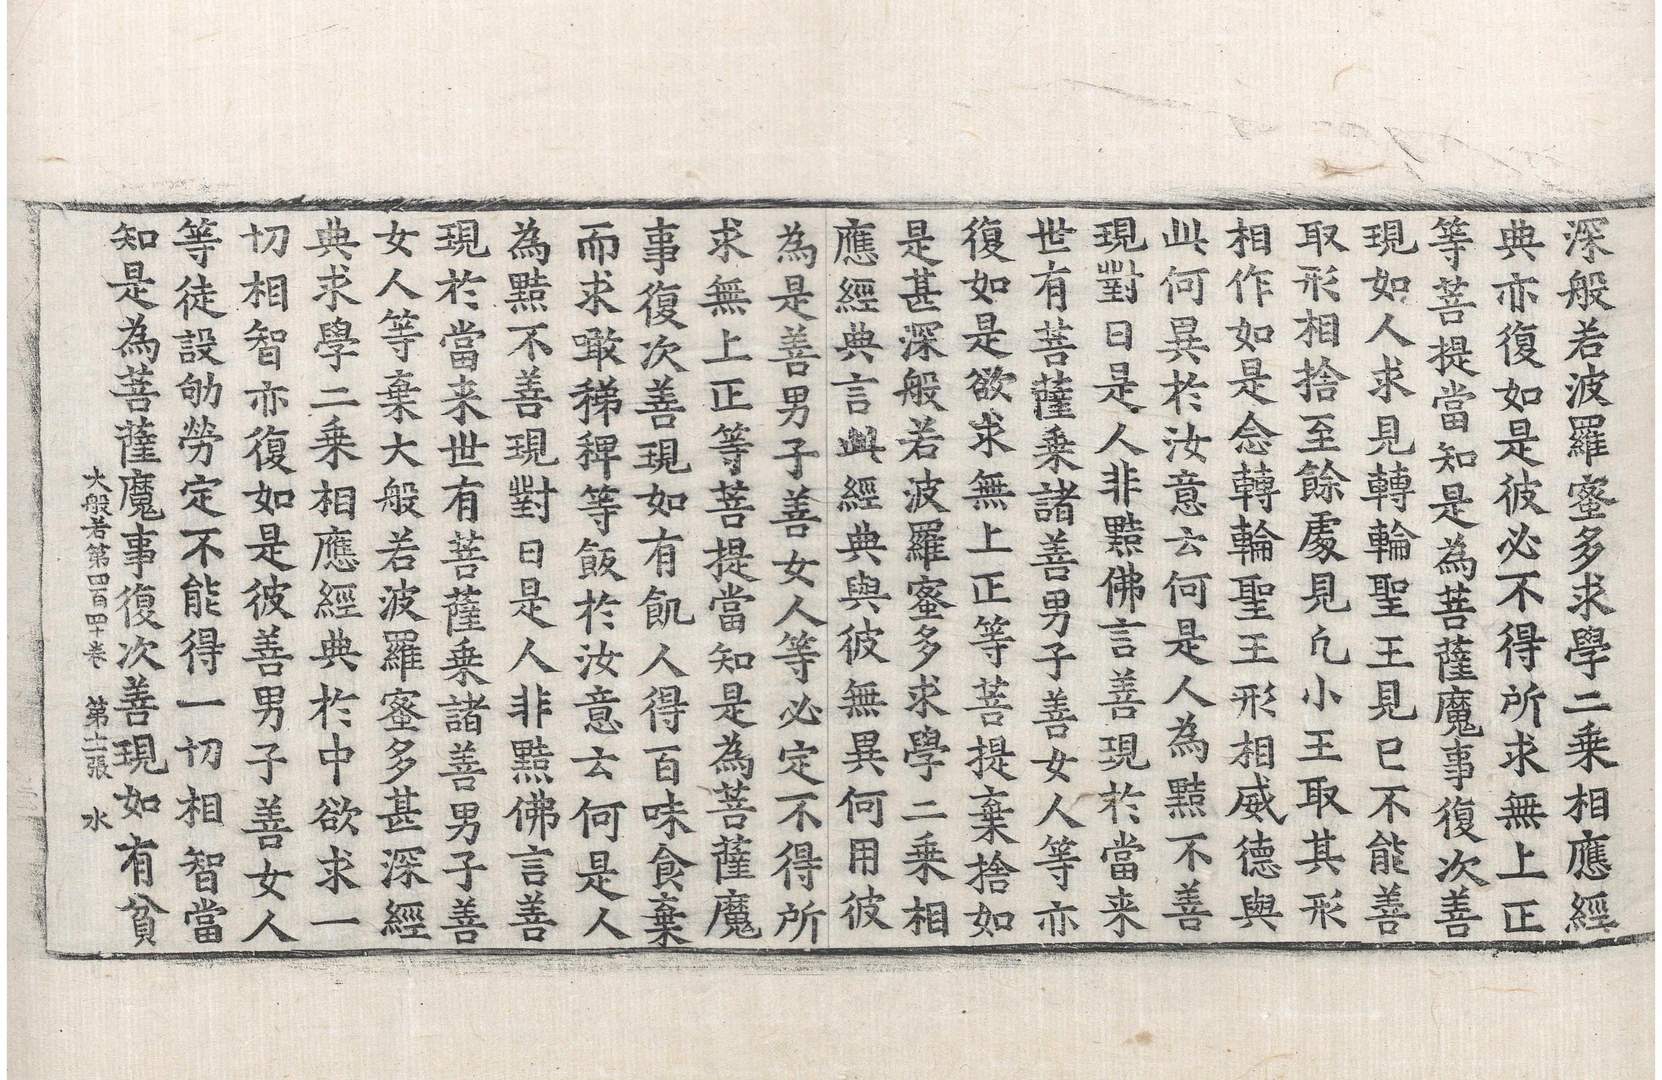 深般若波羅蜜多求學二乗相應經
典亦復如是彼必不得所求無上正
等菩提當知是為菩薩魔事復次善
現如人求見轉輪聖王見已不能善
取形相捨至餘處見凢小王取其形
相作如是念轉輪聖王形相威德與
此何異於汝意云何是人為黠不善
現對曰是人非黠佛言善現於當来
世有菩薩乗諸善男子善女人等亦
復如是欲求無上正等菩提棄捨如
是甚深般若波羅蜜多求學二乗相
應經典言此經典與彼無異何用彼
為是善男子善女人等必定不得所
求無上正等菩提當知是為菩薩魔
事復次善現如有飢人得百味食棄
而求噉稊稗等飯於汝意云何是人
為黠不善現對曰是人非黠佛言善
現於當来世有菩薩乗諸善男子善
女人等棄大般若波羅蜜多甚深經
典求學二乗相應經典於中欲求一
切相智亦復如是彼善男子善女人
等徒設劬勞定不能得一切相智當
知是為菩薩魔事復次善現如有貧
大般若第四百四十卷　第十二張　水